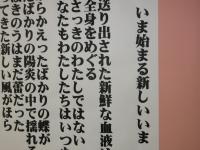 いま始まる新しいいま
送り出された新鮮な血液は
全身をめぐる
さっきのわたしではない
なたもわたしたちはいつも
らかえったばかりの蝶が
ばかりの陽炎の中で揺れる
のうはまだ蕾だった
てきた新しい風がほら